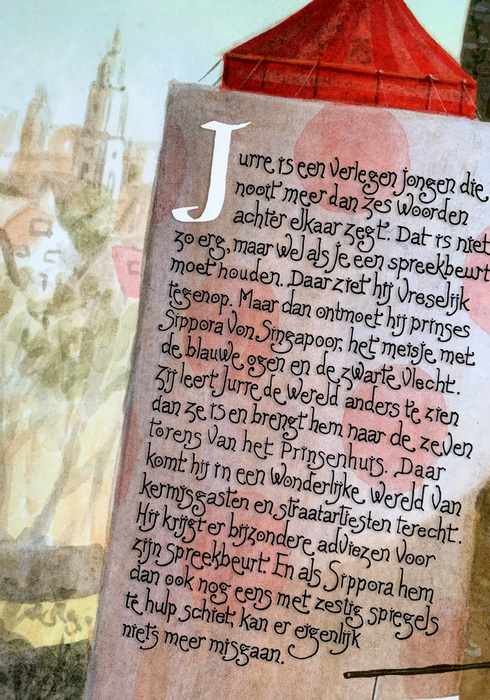 Jurre is een verlegen jongen die
nooit meer dan zes woorden
achter elkaar zegt. Dat is niet
zo erg, maar wel als je een spreekbeurt
moet houden. Daar ziet hij vreselijk
tegenop. Maar dan ontmoet hij prinses
Sippora von Singapoor, het meisje met
de blauwe ogen en de zwarte vlecht.
Zij leert Jurre de wereld anders te zien
dan ze is en brengt hem naar de zeven
torens van het Prinsenhuis. Daar
komt hij in een wonderlijke wereld van
kermisgasten en straatartiesten terecht.
Hij krijgt er bijzondere adviezen voor
zijn spreekbeurt. En als Sippora hem
dan ook nog eens met zestig spiegels
te hulp schiet, kan er eigenlijk
niets meer misgaan.